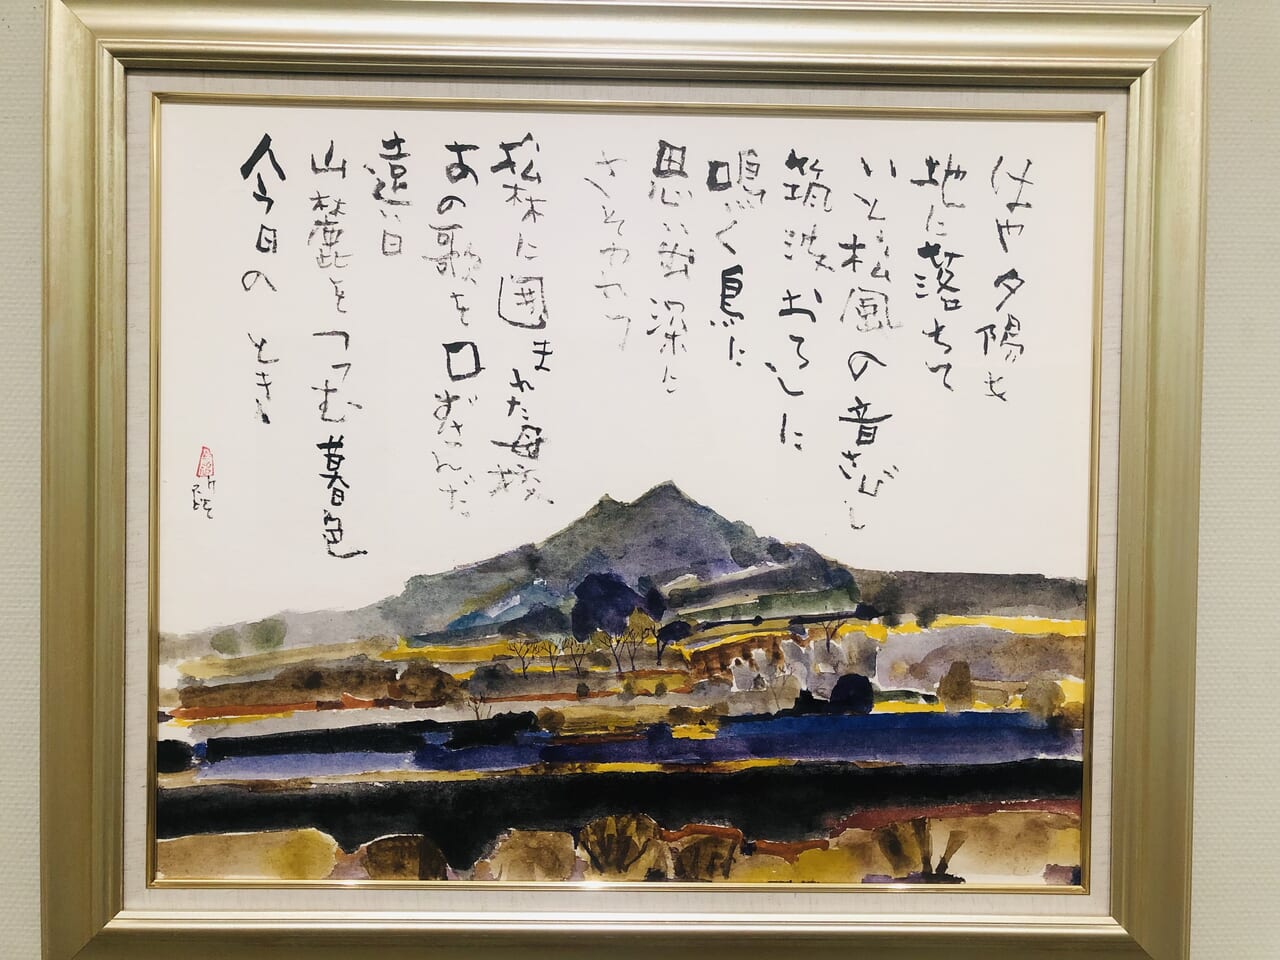 はや夕陽も
地に落ちて
いと松風の音さびし
筑波おろしに
鳴く鳥に
思い出深に
さそわれつ
松林に囲まれた母校
あの歌を口ずさんだ
遠い日
山麓をつつむ暮色
今日のとき